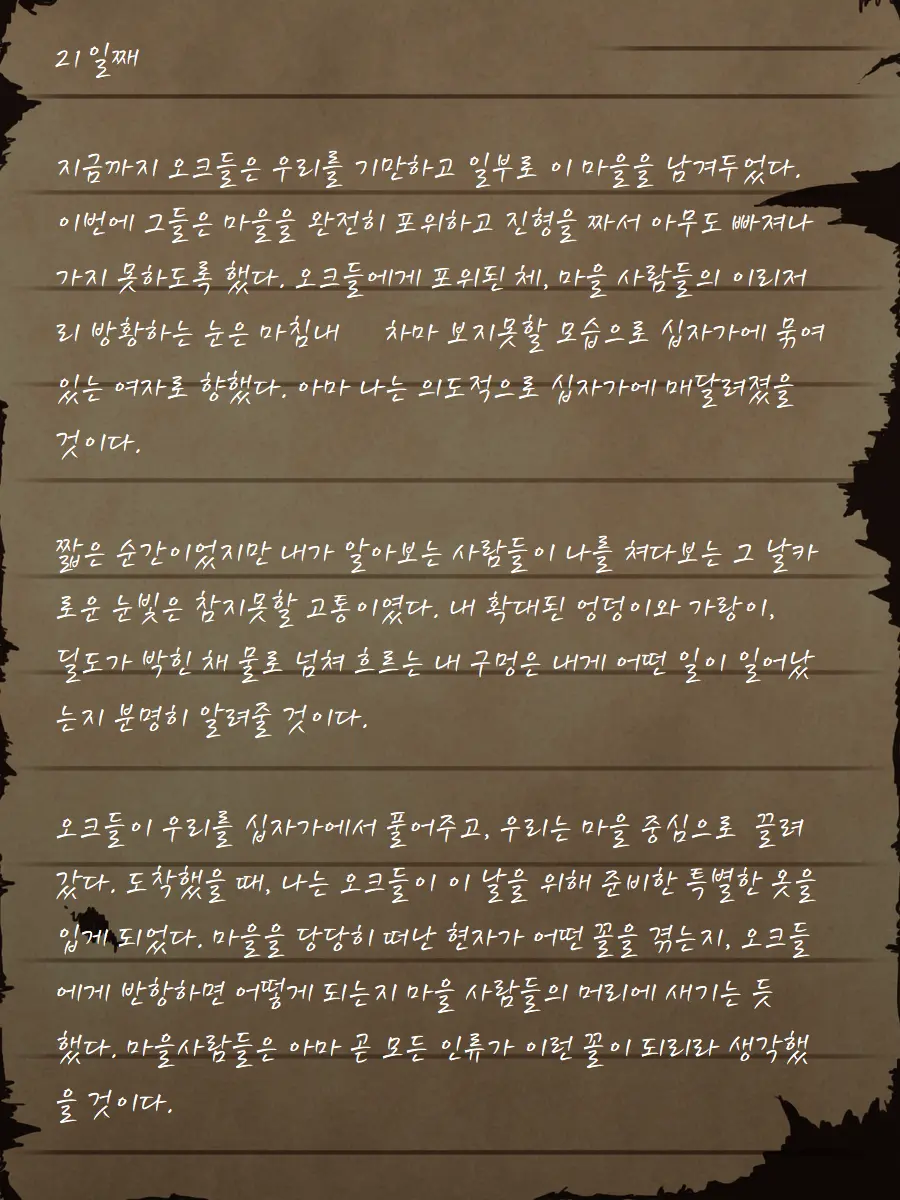 21일째
지금까지 오크들은 우리를 기만하고 일부로 이 마을을 남겨두었다.
이번에 그들은 마을을 완전히 포위하고 진형을 짜서 아무도 빠져나
가지 못하도록 했다. 오크들에게 포위된 체, 마을 사람들의 이리저
리 방황하는 눈은 마침내 차마 보지못할 모습으로 십자가에 묶여
있는 여자로 향했다. 아마 나는 의도적으로 십자가에 매달려졌을
것이다.
짧은 순간이었지만 내가 알아보는 사람들이 나를 쳐다보는 그 날카
로운 눈빛은 참지못할 고통이였다. 내 확대된 엉덩이와 가랑이,
딜도가 박힌 채 물로 넘쳐 흐르는 내 구멍은 내게 어떤 일이 일어났
는지 분명히 알려줄 것이다.
오크들이 우리를 십자가에서 풀어주고, 우리는 마을 중심으로 끌려
갔다. 도착했을 때, 나는 오크들이 이 날을 위해 준비한 특별한 옷을
입게 되었다. 마을을 당당히 떠난 현자가 어떤 꼴을 겪는지, 오크들
에게 반항하면 어떻게 되는지 마을 사람들의 머리에 새기는 듯
했다. 마을사람들은 아마 곧 모든 인류가 이런 꼴이 되리라 생각했
을 것이다.